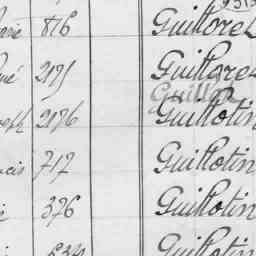 816 Guillore
né 2195 Guillore
Guillo
eph 2196 Guillotin
cis 717 Guillotin
376 Guillotin
Guillotin